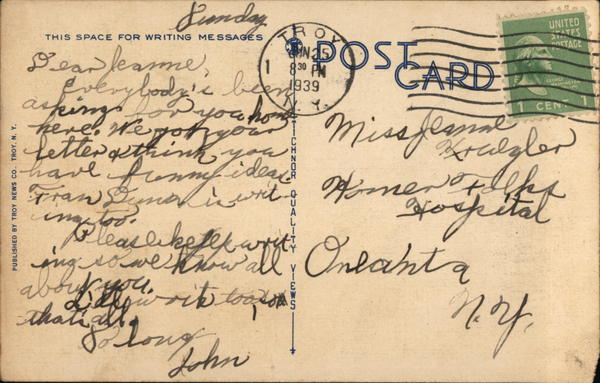 Sunday
THIS SPACE FOR WRITING MESSAGES
Dear Jeanne,
Everybody's been
asking for you home
here. We got your
letter & think you
have funny ideas
Fran is writ-
ing too.
Please keep writ-
ing so we know all
about you.
I'll write too so
that's all,
So long
John
PUBLISHED BY TROY NEWS CO. TROY, N. Y.
TICHNOR QUALITY VIEWS
POST
CARD
TROY
JUN 25
8 30 PM
1939
N. Y.
1
UNITED
STATES
POSTAGE
1 CENT 1
Miss Jeanne
Kruegler
Homer Folks
Hospital
Oneonta
N.Y.